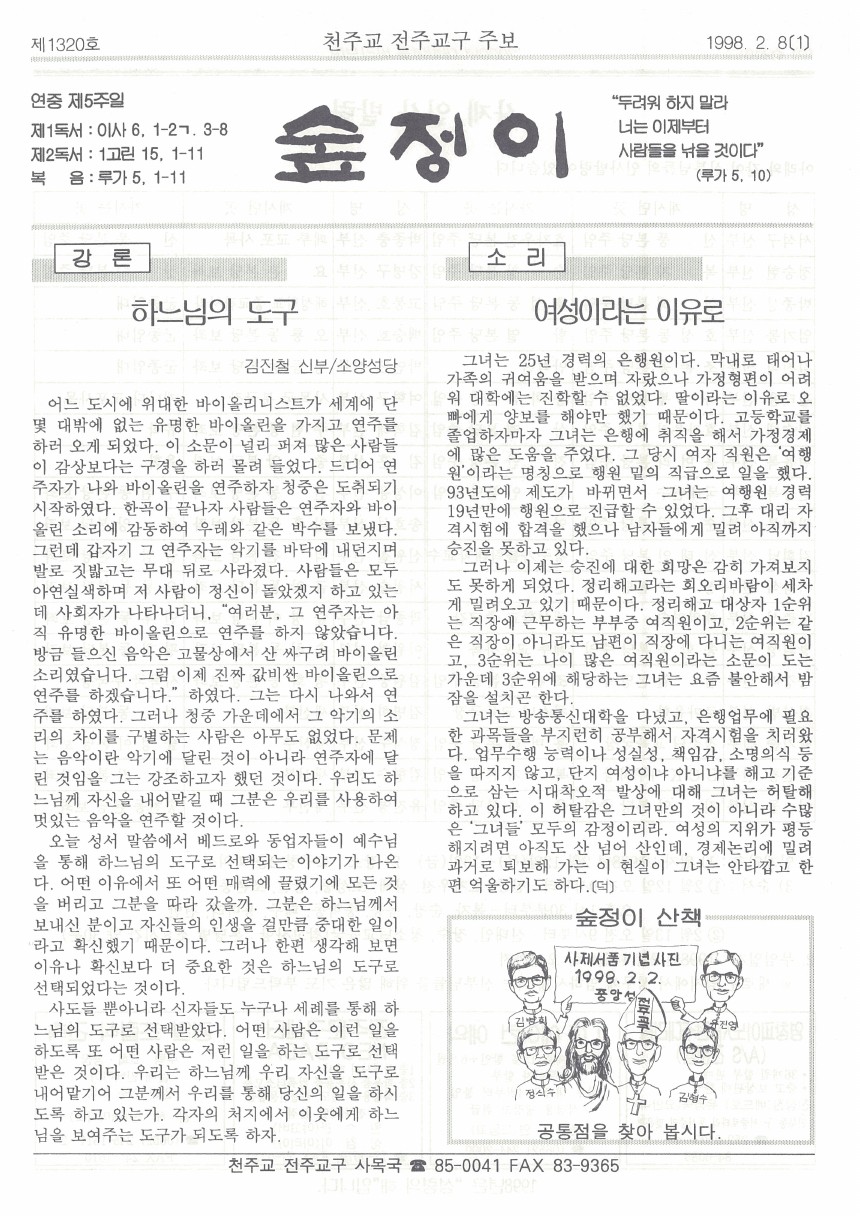 제1320호
천주교 전주교구 주보
1998. 2. 8(1)
연중 제5주일
제1독서 : 이사 6, 1-2ㄱ. 3-8
제2독서 : 1고린 15, 1-11
복 음 : 루가 5, 1-11
숲정이
"두려워 하지 말라
너는 이제부터
사람들을 낚을 것이다"
(루가 5, 10)
강 론
하느님의 도구
김진철 신부/소양성당
어느 도시에 위대한 바이올리니스트가 세계에 단
몇 대밖에 없는 유명한 바이올린을 가지고 연주를
하러 오게 되었다. 이 소문이 널리 퍼져 많은 사람들
이 감상보다는 구경을 하러 몰려 들었다. 드디어 연
주자가 나와 바이올린을 연주하자 청중은 도취되기
시작하였다. 한곡이 끝나자 사람들은 연주자와 바이
올린 소리에 감동하여 우레와 같은 박수를 보냈다.
그런데 갑자기 그 연주자는 악기를 바닥에 내던지며
발로 짓밟고는 무대 뒤로 사라졌다. 사람들은 모두
아연실색하며 저 사람이 정신이 돌았겠지 하고 있는
데 사회자가 나타나더니, "여러분, 그 연주자는 아
직 유명한 바이올린으로 연주를 하지 않았습니다.
방금 들으신 음악은 고물상에서 산 싸구려 바이올린
소리였습니다. 그럼 이제 진짜 값비싼 바이올린으로
연주를 하겠습니다." 하였다. 그는 다시 나와서 연
주를 하였다. 그러나 청중 가운데에서 그 악기의 소
리의 차이를 구별하는 사람은 아무도 없었다. 문제
는 음악이란 악기에 달린 것이 아니라 연주자에 달
린 것임을 그는 강조하고자 했던 것이다. 우리도 하
느님께 자신을 내어맡길 때 그분은 우리를 사용하여
멋있는 음악을 연주할 것이다.
오늘 성서 말씀에서 베드로와 동업자들이 예수님
을 통해 하느님의 도구로 선택되는 이야기가 나온
다. 어떤 이유에서 또 어떤 매력에 끌렸기에 모든 것
을 버리고 그분을 따라 갔을까. 그분은 하느님께서
보내신 분이고 자신들의 인생을 걸만큼 중대한 일이
라고 확신했기 때문이다. 그러나 한편 생각해 보면
이유나 확신보다 더 중요한 것은 하느님의 도구로
선택되었다는 것이다.
사도들 뿐아니라 신자들도 누구나 세례를 통해 하
느님의 도구로 선택받았다. 어떤 사람은 이런 일을
하도록 또 어떤 사람은 저런 일을 하는 도구로 선택
받은 것이다. 우리는 하느님께 우리 자신을 도구로
내어맡기어 그분께서 우리를 통해 당신의 일을 하시
도록 하고 있는가. 각자의 처지에서 이웃에게 하느
님을 보여주는 도구가 되도록 하자.
소 리
여성이라는 이유로
그녀는 25년 경력의 은행원이다. 막내로 태어나
가족의 귀여움을 받으며 자랐으나 가정형편이 어려
워 대학에는 진학할 수 없었다. 딸이라는 이유로 오
빠에게 양보를 해야만 했기 때문이다. 고등학교를
졸업하자마자 그녀는 은행에 취직을 해서 가정경제
에 많은 도움을 주었다. 그 당시 여자 직원은 '여행
원'이라는 명칭으로 행원 밑의 직급으로 일을 했다.
93년도에 제도가 바뀌면서 그녀는 여행원 경력
19년만에 행원으로 진급할 수 있었다. 그후 대리 자
격시험에 합격을 했으나 남자들에게 밀려 아직까지
승진을 못하고 있다.
그러나 이제는 승진에 대한 희망은 감히 가져보지
도 못하게 되었다. 정리해고라는 회오리바람이 세차
게 밀려오고 있기 때문이다. 정리해고 대상자 1순위
는 직장에 근무하는 부부중 여직원이고, 2순위는 같
은 직장이 아니라도 남편이 직장에 다니는 여직원이
고, 3순위는 나이 많은 여직원이라는 소문이 도는
가운데 3순위에 해당하는 그녀는 요즘 불안해서 밤
잠을 설치곤 한다.
그녀는 방송통신대학을 다녔고, 은행업무에 필요
한 과목들을 부지런히 공부해서 자격시험을 치러왔
다. 업무수행 능력이나 성실성, 책임감, 소명의식 등
을 따지지 않고, 단지 여성이냐 아니냐를 해고 기준
으로 삼는 시대착오적 발상에 대해 그녀는 허탈해
하고 있다. 이 허탈감은 그녀만의 것이 아니라 수많
은 '그녀들' 모두의 감정이리라. 여성의 지위가 평등
해지려면 아직도 산 넘어 산인데, 경제논리에 밀려
과거로 퇴보해 가는 이 현실이 그녀는 안타깝고 한
편 억울하기도 하다.(덕)
숲정이 산책
사제서품기념사진
1998. 2. 2.
중앙성
전주교구
정식수
김형수
공통점을 찾아 봅시다.
천주교 전주교구 사목국 ☎ 85-0041 FAX 83-9365